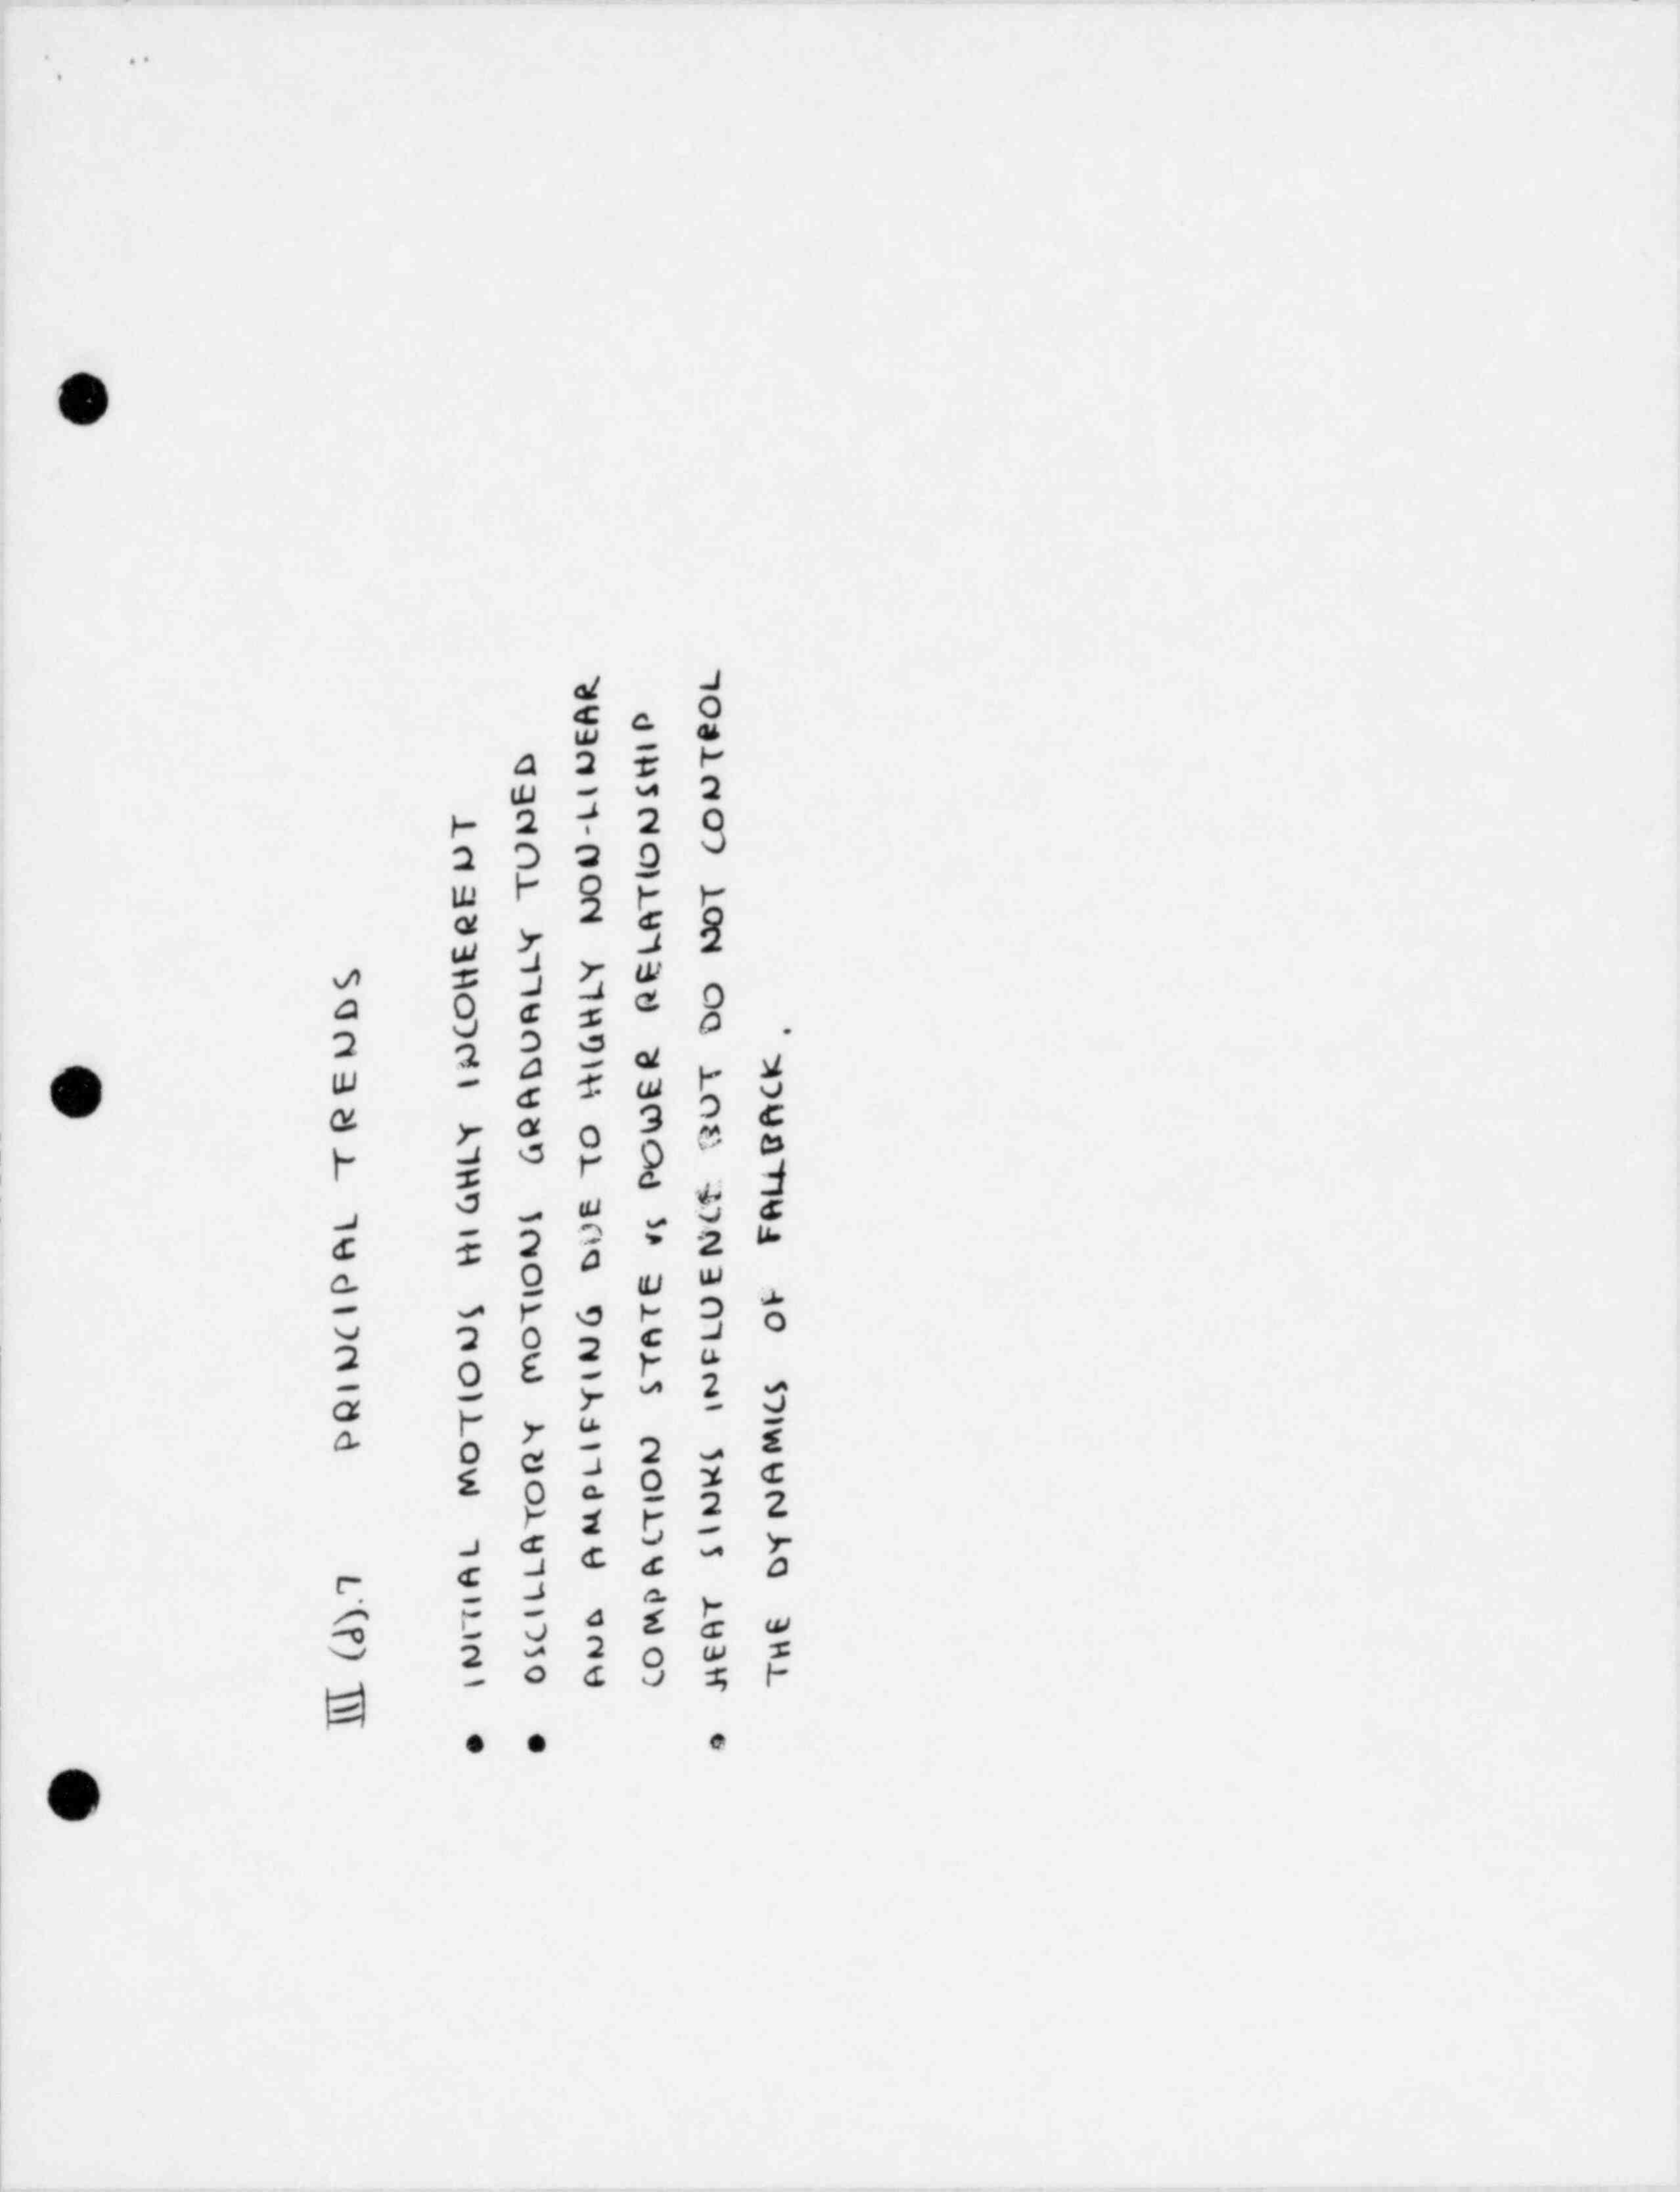 III (d).7 PRINCIPAL TRENDS
• INITIAL MOTIONS HIGHLY INCOHERENT
• OSCILLATORY MOTIONS GRADUALLY TUNED
AND AMPLIFYING DUE TO HIGHLY NON-LINEAR
COMPACTION STATE VS POWER RELATIONSHIP
• HEAT SINKS INFLUENCE BUT DO NOT CONTROL
THE DYNAMICS OF FALLBACK.